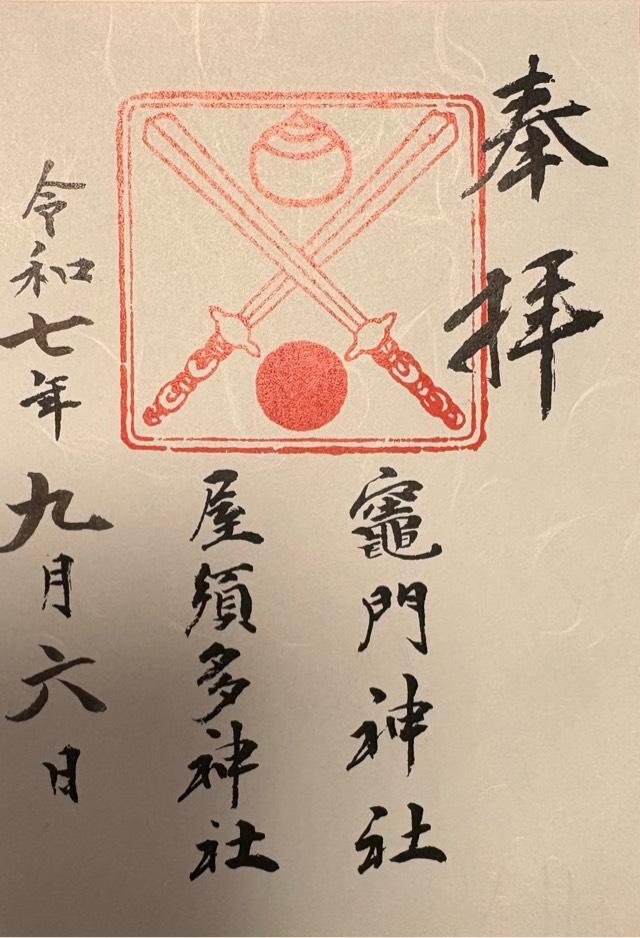 奉拝
竈門神社
屋須多神社
令和七年九月六日